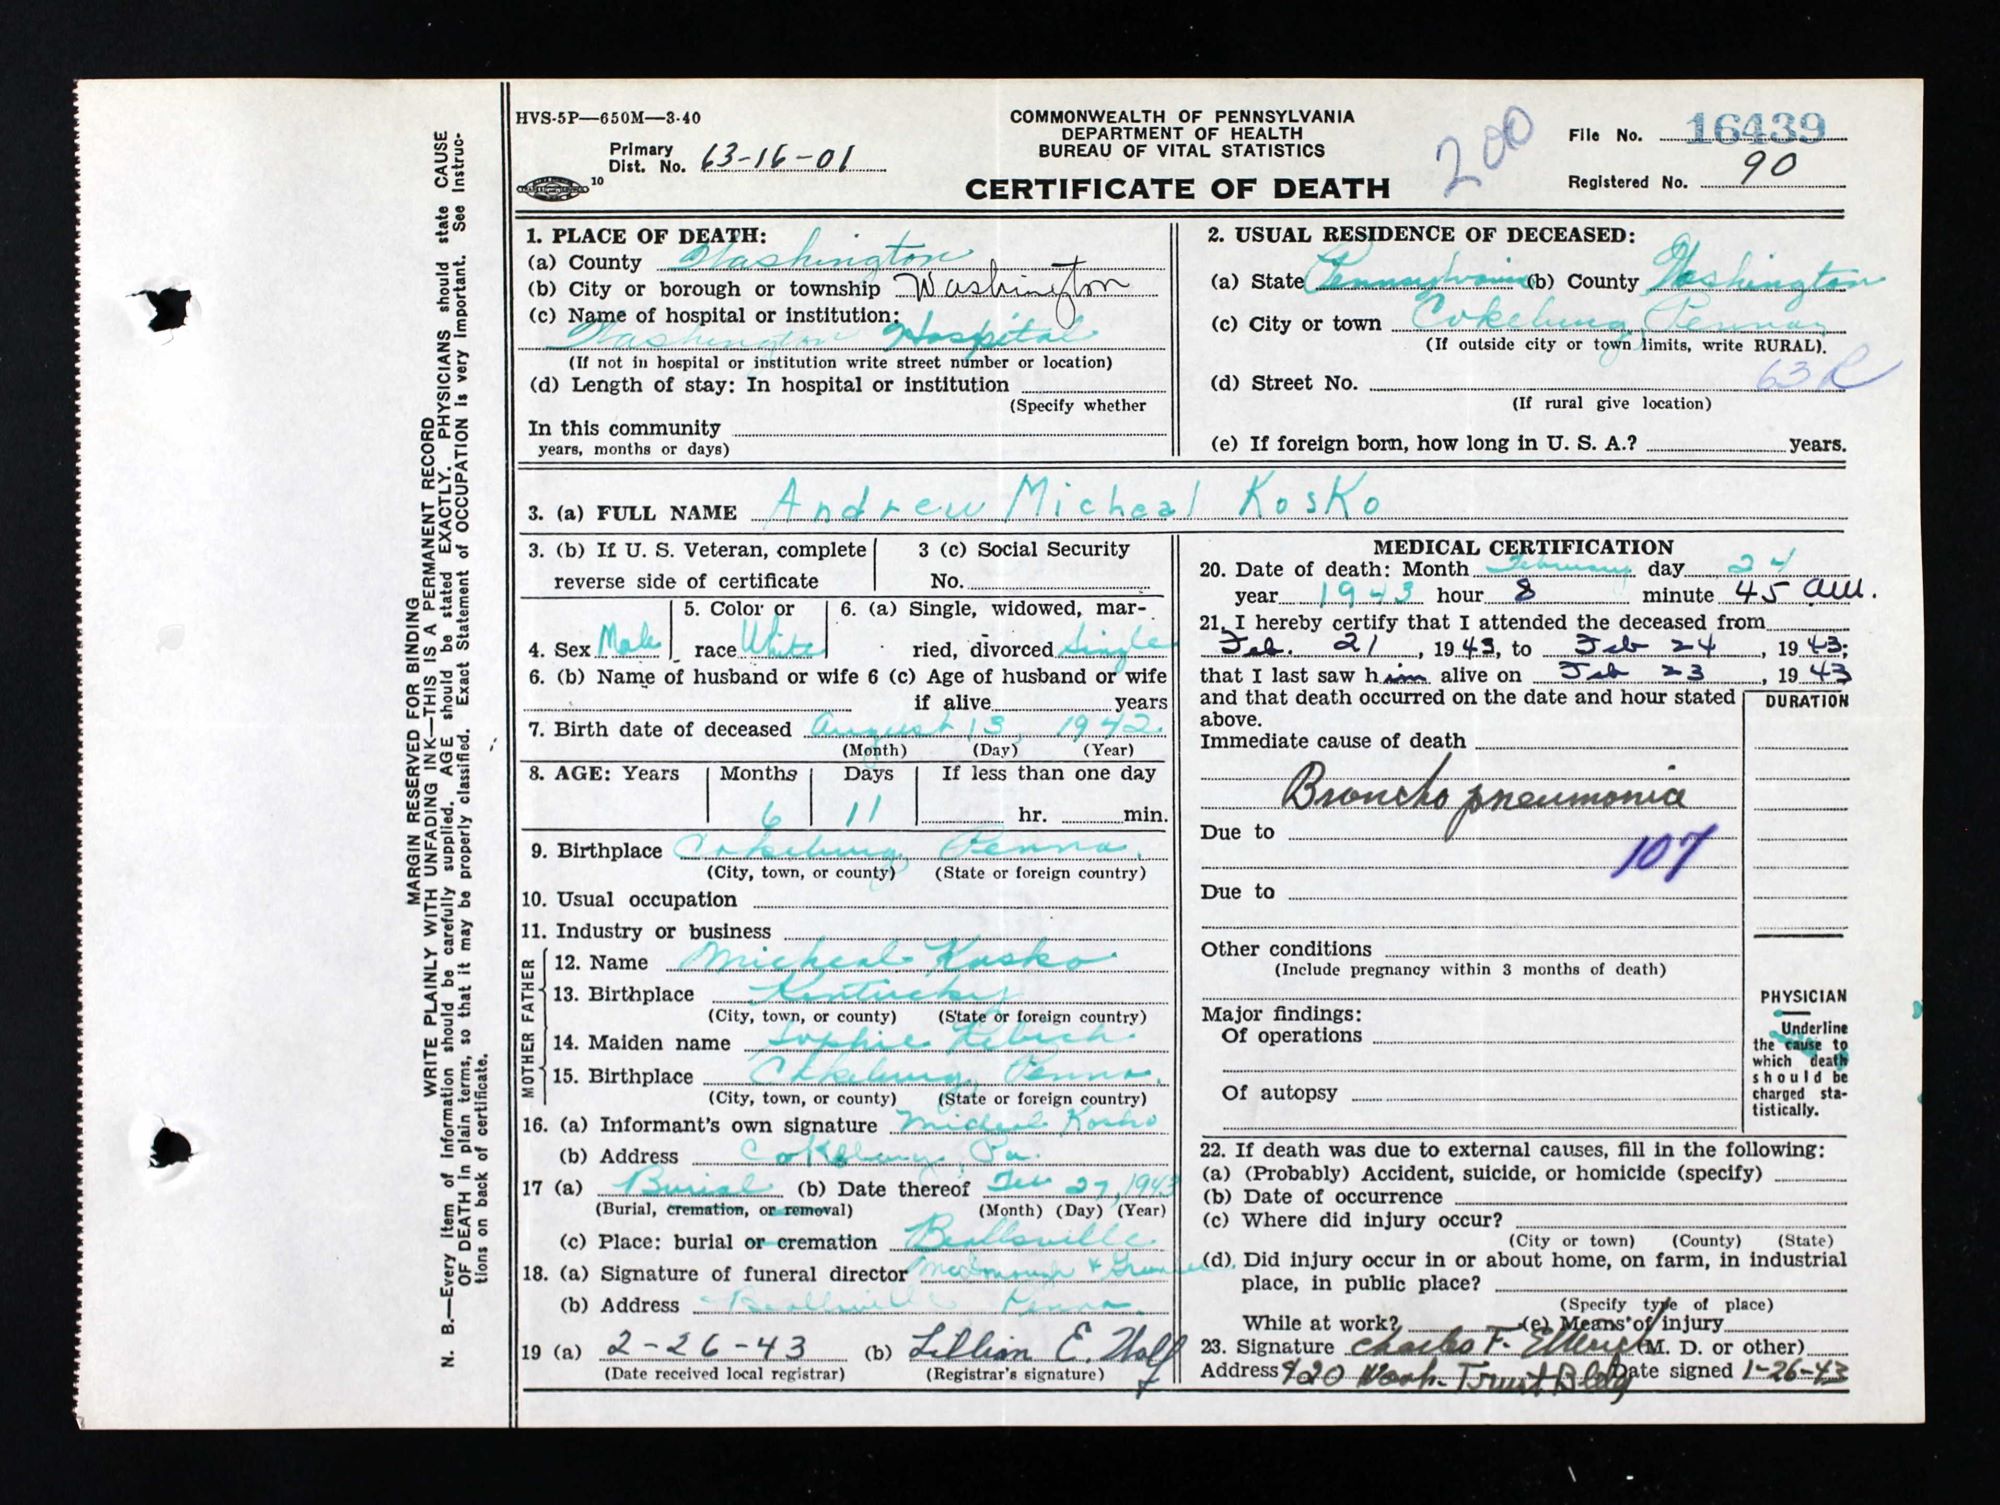 HVS-5P—650M—3-40
COMMONWEALTH OF PENNSYLVANIA
DEPARTMENT OF HEALTH
BUREAU OF VITAL STATISTICS
CERTIFICATE OF DEATH
200
File No. 16439
Registered No. 90
Primary
Dist. No. 63-16-01
10
MARGIN RESERVED FOR BINDING
WRITE PLAINLY WITH UNFADING INK—THIS IS A PERMANENT RECORD
N. B.—Every item of information should be carefully supplied. AGE should be stated EXACTLY. PHYSICIANS should state CAUSE
OF DEATH in plain terms, so that it may be properly classified. Exact Statement of OCCUPATION is very important. See Instruc-
tions on back of certificate.
1. PLACE OF DEATH:
(a) County Washington
(b) City or borough or township Washington
(c) Name of hospital or institution:
Washington Hospital
(If not in hospital or institution write street number or location)
(d) Length of stay: In hospital or institution
(Specify whether
In this community
years, months or days)
2. USUAL RESIDENCE OF DECEASED:
(a) State Pennsylvania (b) County Washington
(c) City or town Cokeburg, Penna
(If outside city or town limits, write RURAL).
(d) Street No. 63 R
(If rural give location)
(e) If foreign born, how long in U. S. A.? years.
3. (a) FULL NAME Andrew Micheal Kosko
3. (b) If U. S. Veteran, complete
reverse side of certificate
3 (c) Social Security
No.
4. Sex Male
5. Color or
race White
6. (a) Single, widowed, mar-
ried, divorced Single
6. (b) Name of husband or wife 6 (c) Age of husband or wife
if alive years
7. Birth date of deceased August 13, 1942.
(Month) (Day) (Year)
8. AGE: Years Months Days If less than one day
6 11 hr. min.
9. Birthplace Cokeburg, Penna.
(City, town, or county) (State or foreign country)
10. Usual occupation
11. Industry or business
FATHER
12. Name Micheal Kosko
13. Birthplace Kentucky
(City, town, or county) (State or foreign country)
MOTHER
14. Maiden name Sophie
15. Birthplace Cokeburg, Penna.
(City, town, or county) (State or foreign country)
16. (a) Informant's own signature Micheal Kosko
(b) Address Cokeburg, Pa.
17 (a) Burial (b) Date thereof Feb 27, 1943
(Burial, cremation, or removal) (Month) (Day) (Year)
(c) Place: burial or cremation Beallsville
18. (a) Signature of funeral director
(b) Address Beallsville Penna.
19 (a) 2-26-43 (b) Lillian E. Wolf
(Date received local registrar) (Registrar's signature)
MEDICAL CERTIFICATION
20. Date of death: Month February day 24
year 1943 hour 8 minute 45 AM.
21. I hereby certify that I attended the deceased from
Feb. 21, 1943, to Feb 24, 1943;
that I last saw him alive on Feb 23, 1943
and that death occurred on the date and hour stated
above.
DURATION
Immediate cause of death
Broncho pneumonia
Due to
107
Due to
Other conditions
(Include pregnancy within 3 months of death)
Major findings:
Of operations
Of autopsy
PHYSICIAN
Underline
the cause to
which death
should be
charged sta-
tistically.
22. If death was due to external causes, fill in the following:
(a) (Probably) Accident, suicide, or homicide (specify)
(b) Date of occurrence
(c) Where did injury occur?
(City or town) (County) (State)
(d). Did injury occur in or about home, on farm, in industrial
place, in public place?
(Specify type of place)
While at work? (e) Means of injury
23. Signature Charles F. (M. D. or other)
Address 420 Wash. Trust Bldg Date signed 1-26-43